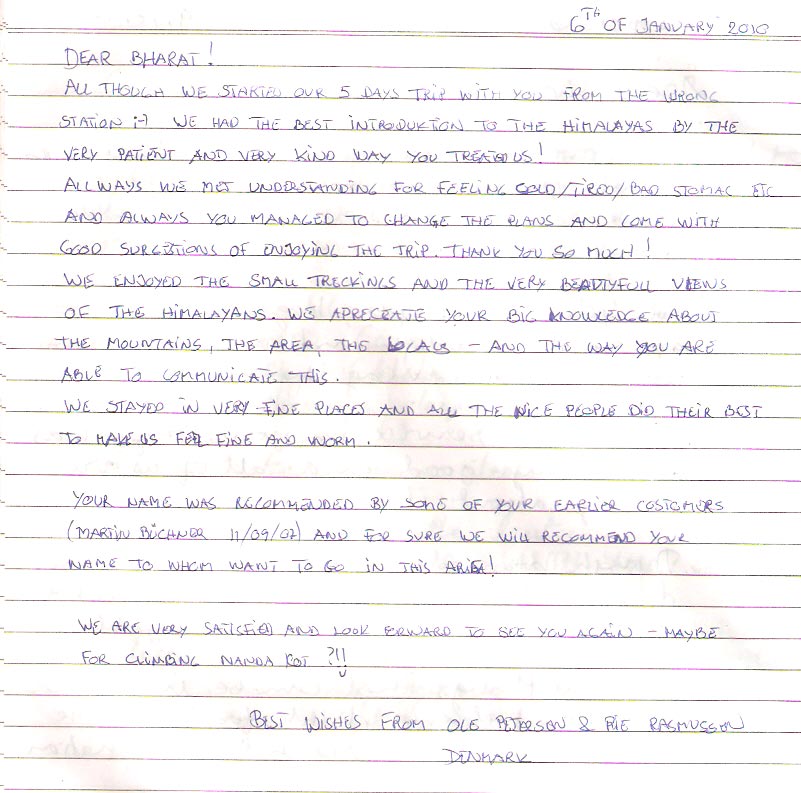 6TH OF JANUARY 2010
DEAR BHARAT!
ALLTHOUGH WE STARTED OUR 5 DAYS TRIP WITH YOU FROM THE WRONG
STATION ;-) WE HAD THE BEST INTRODUKTION TO THE HIMALAYAS BY THE
VERY PATIENT AND VERY KIND WAY YOU TREATED US!
ALLWAYS WE MET UNDERSTANDING FOR FEELING COLD/TIRED/BAD STOMAC ETC
AND ALWAYS YOU MANAGED TO CHANGE THE PLANS AND COME WITH
GOOD SURGETIONS OF ENJOYING THE TRIP. THANK YOU SO MUCH!
WE ENJOYED THE SMALL TRECKINGS AND THE VERY BEAUTYFULL VIEWS
OF THE HIMALAYANS. WE APRECEATE YOUR BIG KNOWLEDGE ABOUT
THE MOUNTAINS, THE AREA, THE LOCALS – AND THE WAY YOU ARE
ABLE TO COMMUNICATE THIS.
WE STAYED IN VERY FINE PLACES AND ALL THE NICE PEOPLE DID THEIR BEST
TO MAKE US FEEL FINE AND WORM.
YOUR NAME WAS RECOMMENDED BY SOME OF YOUR EARLIER COSTOMORS
(MARTIN BÜCHNER 11/09/07) AND FOR SURE WE WILL RECOMMEND YOUR
NAME TO WHOM WANT TO GO IN THIS AREA!
WE ARE VERY SATISFIED AND LOOK FORWARD TO SEE YOU AGAIN – MAYBE
FOR CLIMBING NANDA KOT ?!!
BEST WISHES FROM OLE PETERSEN & PIE RASMUSSEN
DENMARK